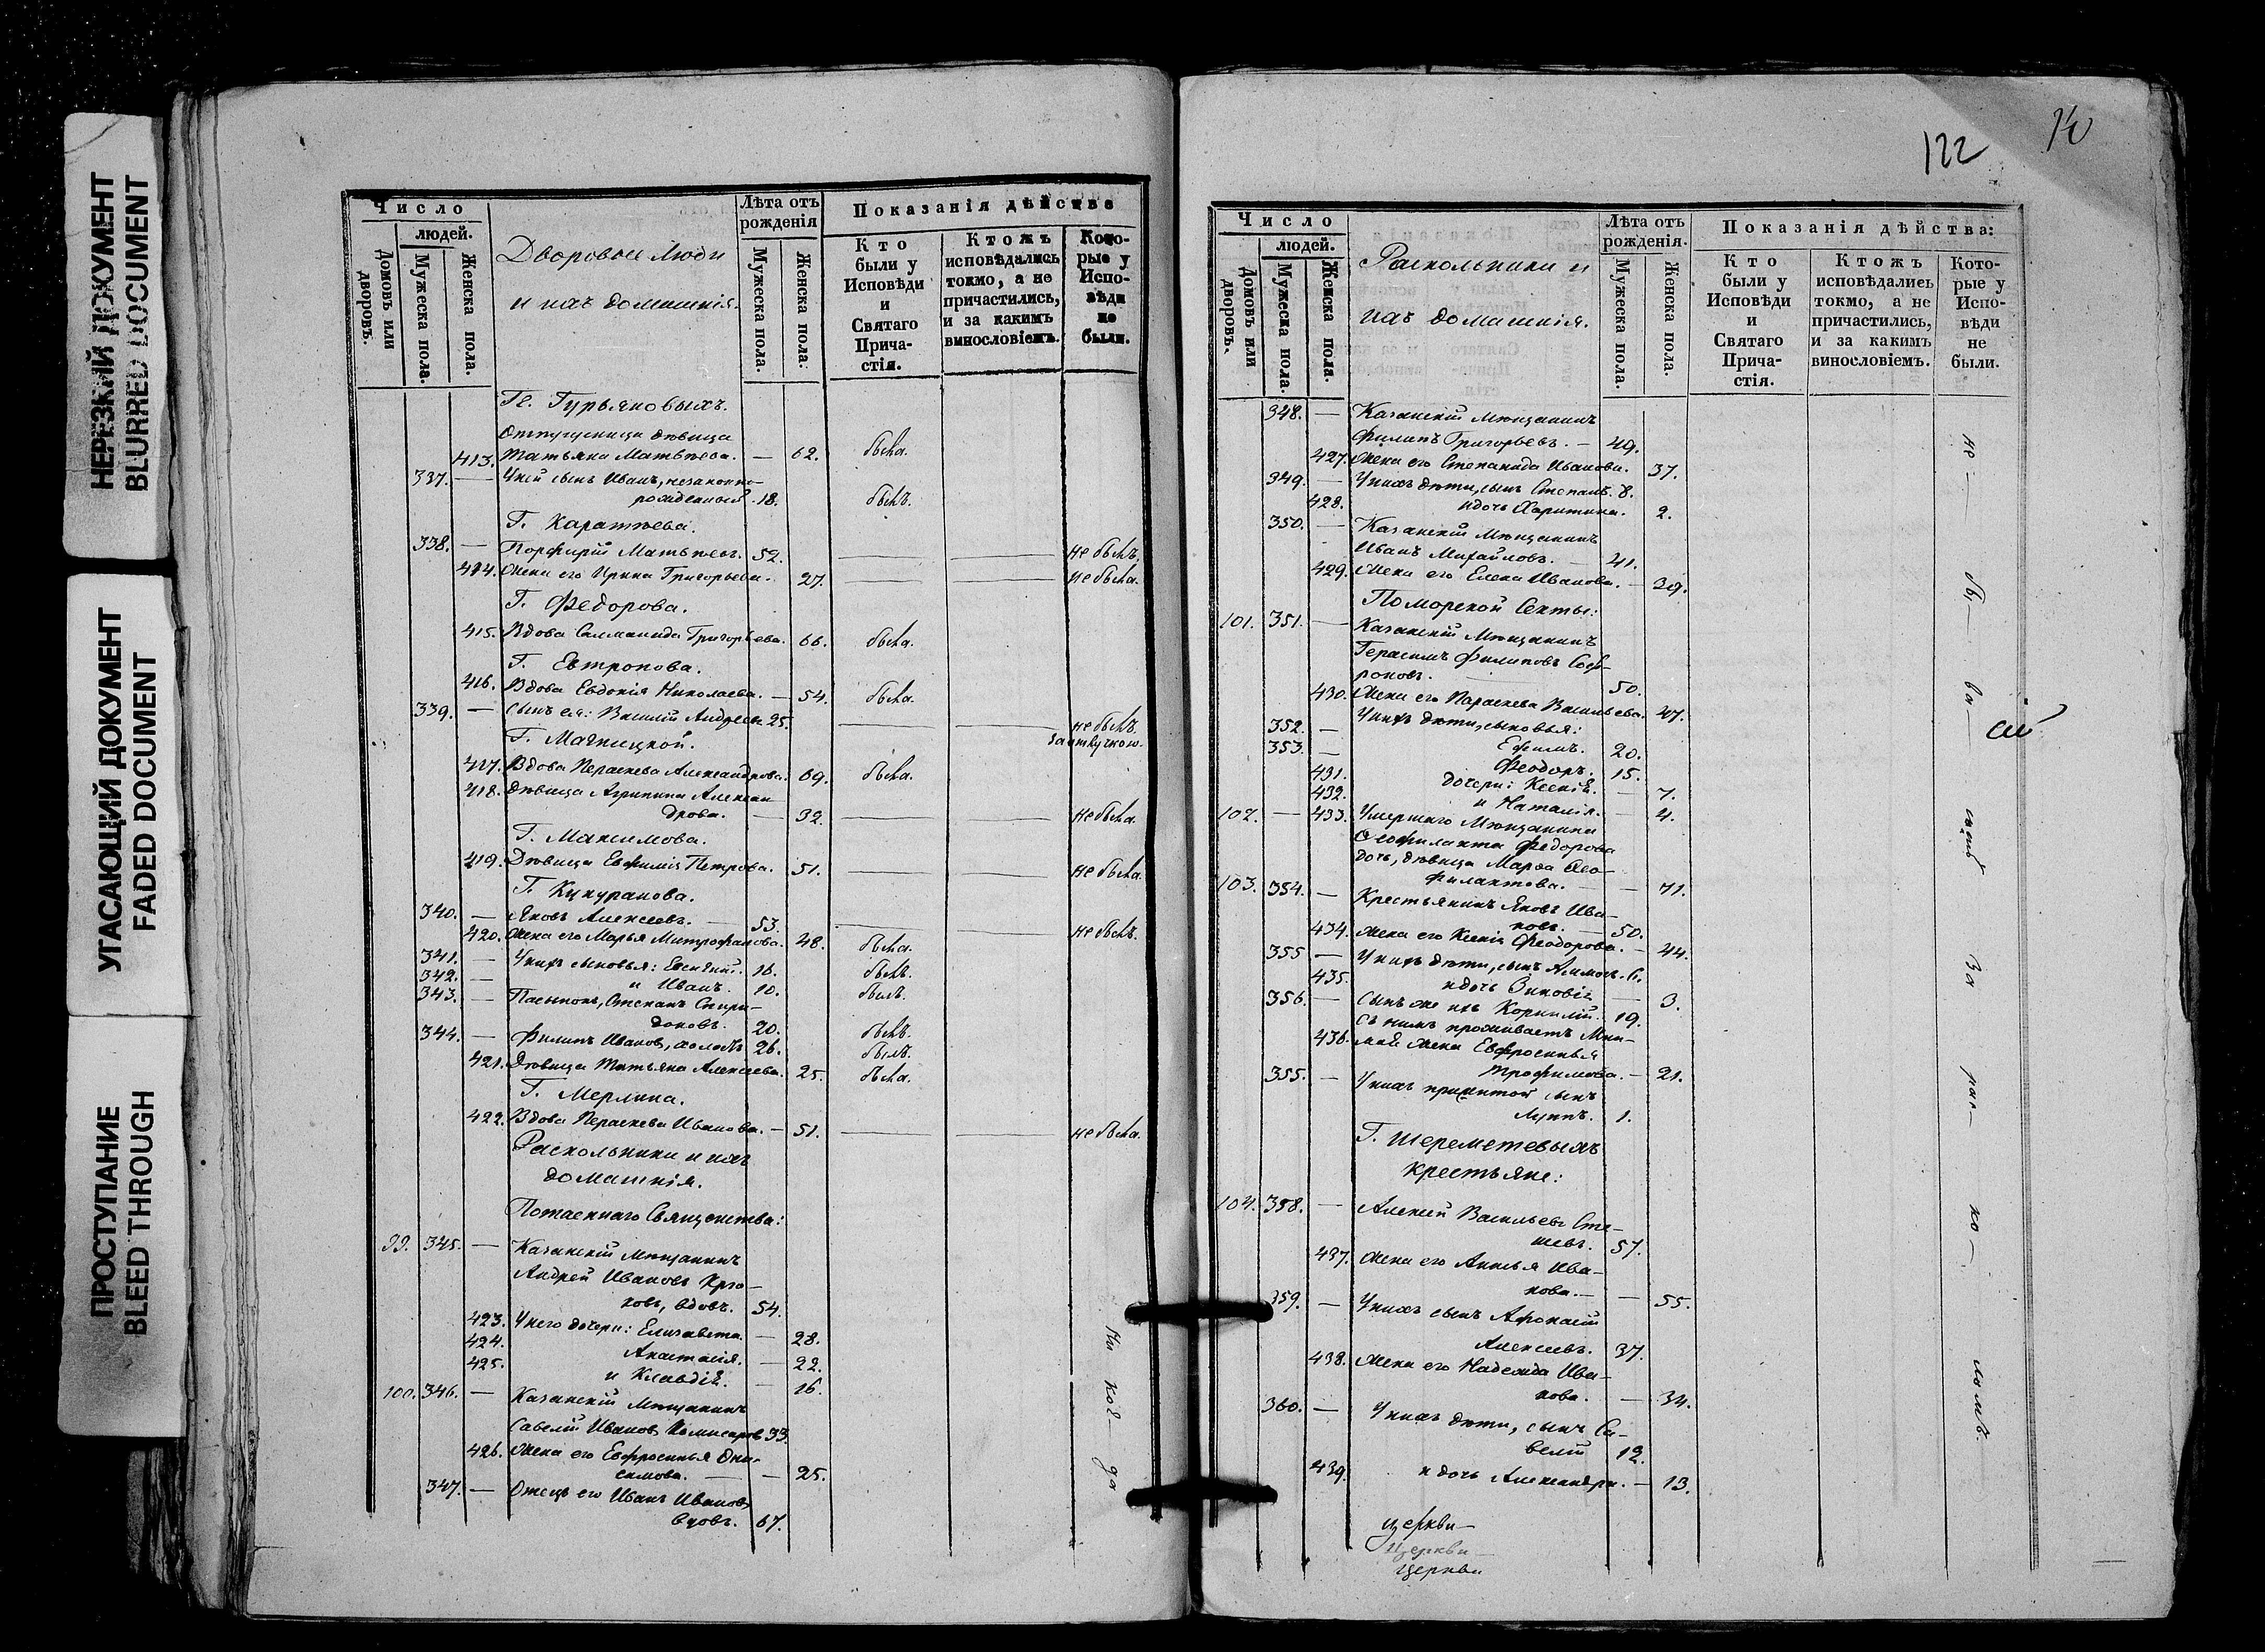 НЕРЕЗКИЙ ДОКУМЕНТ
BLURRED DOCUMENT
УГАСАЮЩИЙ ДОКУМЕНТ
FADED DOCUMENT
ПРОСТУПАНИЕ
BLEED THROUGH
Число
людей.
Домовъ или дворовъ.
Мужеска пола.
Женска пола.
Дворовые люди
и ихъ домашнія.
Лѣта отъ рожденія
Мужеска пола.
Женска пола.
Показанія дѣйства
Кто были у Исповѣди и Святаго Причастія.
Ктожъ исповѣдались токмо, а не причастились, и за какимъ винословіемъ.
Которые у Исповѣди не были.
Гг. Гурьяновыхъ.
Отпущеница дѣвица
413. Татьяна Матвѣева. — 62. была.
337. — У ней сынъ Иванъ, незаконно-
рожденный 18. былъ.
Г. Каратѣева.
338. — Порфирій Матвѣевъ. 52. не былъ.
414. Жена его Ирина Григорьева. 27. не была.
Г. Федорова.
415. Вдова Саламанида Григорьева. 66. была.
Г. Евтропова.
416. Вдова Евдокія Николаева. — 54. была.
339. — Сынъ ея: Василій Андреевъ 25. не былъ
за отлучкою.
Г. Магницкой.
417. Вдова Параскева Александрова. 69. была.
418. Дѣвица Агрипина Алексан
дрова. — 32. не была
Г. Максимова.
419. Дѣвица Евфимія Петрова. 51. не была.
Г. Кукуранова.
340. — Яковъ Алексеевъ. — 53. не былъ.
420. Жена его Марья Митрофанова. 48. была.
341. — У нихъ сыновья: Евгений. 16. былъ.
342. — и Иванъ. 10. былъ.
343. — Пасынокъ, Степанъ Спири-
доновъ. 20. былъ.
344. — Филипъ Иванов, холостъ 26. былъ.
421. Дѣвица Татьяна Алексеева. 25. была.
Г. Мерлина.
422. Вдова Параскева Иванова. — 51. не была.
Раскольники и ихъ
домашнія.
Потаеннаго Священства:
99. 345. — Казанскій мѣщанинъ
Андрей Ивановъ Крю-
ковъ, вдовъ. 54.
423. У него дочери: Елизавета. — 28.
424. Анастасія. — 22.
425. и Клавдія. — 16.
100. 346. — Казанскій мѣщанинъ
Савелій Иванов Комисаров 33.
426. Жена его Евфросинья Они-
симова. — 25.
347. — Отецъ его Иванъ Ивановъ
вдовъ. 67.
Ни ког да
122
Число
людей.
Домовъ или дворовъ.
Мужеска пола.
Женска пола.
Раскольники и
ихъ домашнія.
Лѣта отъ рожденія.
Мужеска пола.
Женска пола.
Показанія дѣйства:
Кто были у Исповѣди и Святаго Причастія.
Ктожъ исповѣдались токмо, а не причастились, и за какимъ винословіемъ.
Которые у Исповѣди не были.
348. — Казанскій мѣщанинъ
Филипъ Григорьевъ. — 49.
427. Жена его Степанида Иванова. 37.
349. — У нихъ дѣти, сынъ Степанъ. 8.
428. и дочь Харитина. 2.
350. — Казанскій мѣщанинъ
Иванъ Михайловъ. 41.
429. Жена его Елена Иванова. — 39.
Поморской Секты:
101. 351. — Казанскій мѣщанинъ
Герасимъ Филиповъ Соф-
роновъ. 50.
430. Жена его Параскева Васильева. 47.
352. — У нихъ дѣти, сыновья:
353. — Ефимъ. 20.
Феодоръ. 15.
431. дочери: Ксенія. — 7.
432. и Наталія. — 4.
102. — 433. Умершаго мѣщанина
Ѳеофилакта Федорова
дочь, дѣвица Марѳа Ѳео-
филактова. — 71.
103. 354. — Крестьянинъ Яковъ Ива-
новъ. — 50.
434. Жена его Ксенія Феодорова. — 44.
355 — У нихъ дѣти, сынъ Симонъ. 6.
435. и дочь Зиновія — 3.
356. — Сынъ же ихъ Корнилій. 19.
Съ нимъ проживаетъ мни-
436. мая жена Евфросинья
Трофимова. — 21.
355. — У нихъ прижитой сынъ
Луппъ. 1.
Г. Шереметевыхъ
крестьяне:
104. 358. — Алексей Васильевъ Сте-
шевъ. 57.
437. Жена его Анисья Ива-
нова. — 55.
359. — У нихъ сынъ Афонасій
Алексеевъ. 37.
438. Жена его Надежда Ива-
нова. — 34.
360. — У нихъ дѣти, сынъ Са-
велій 12.
439. и дочь Александра. — 13.
не — бы — ва —
за рас — ко — ломъ.
церкви —
церкви
церкви